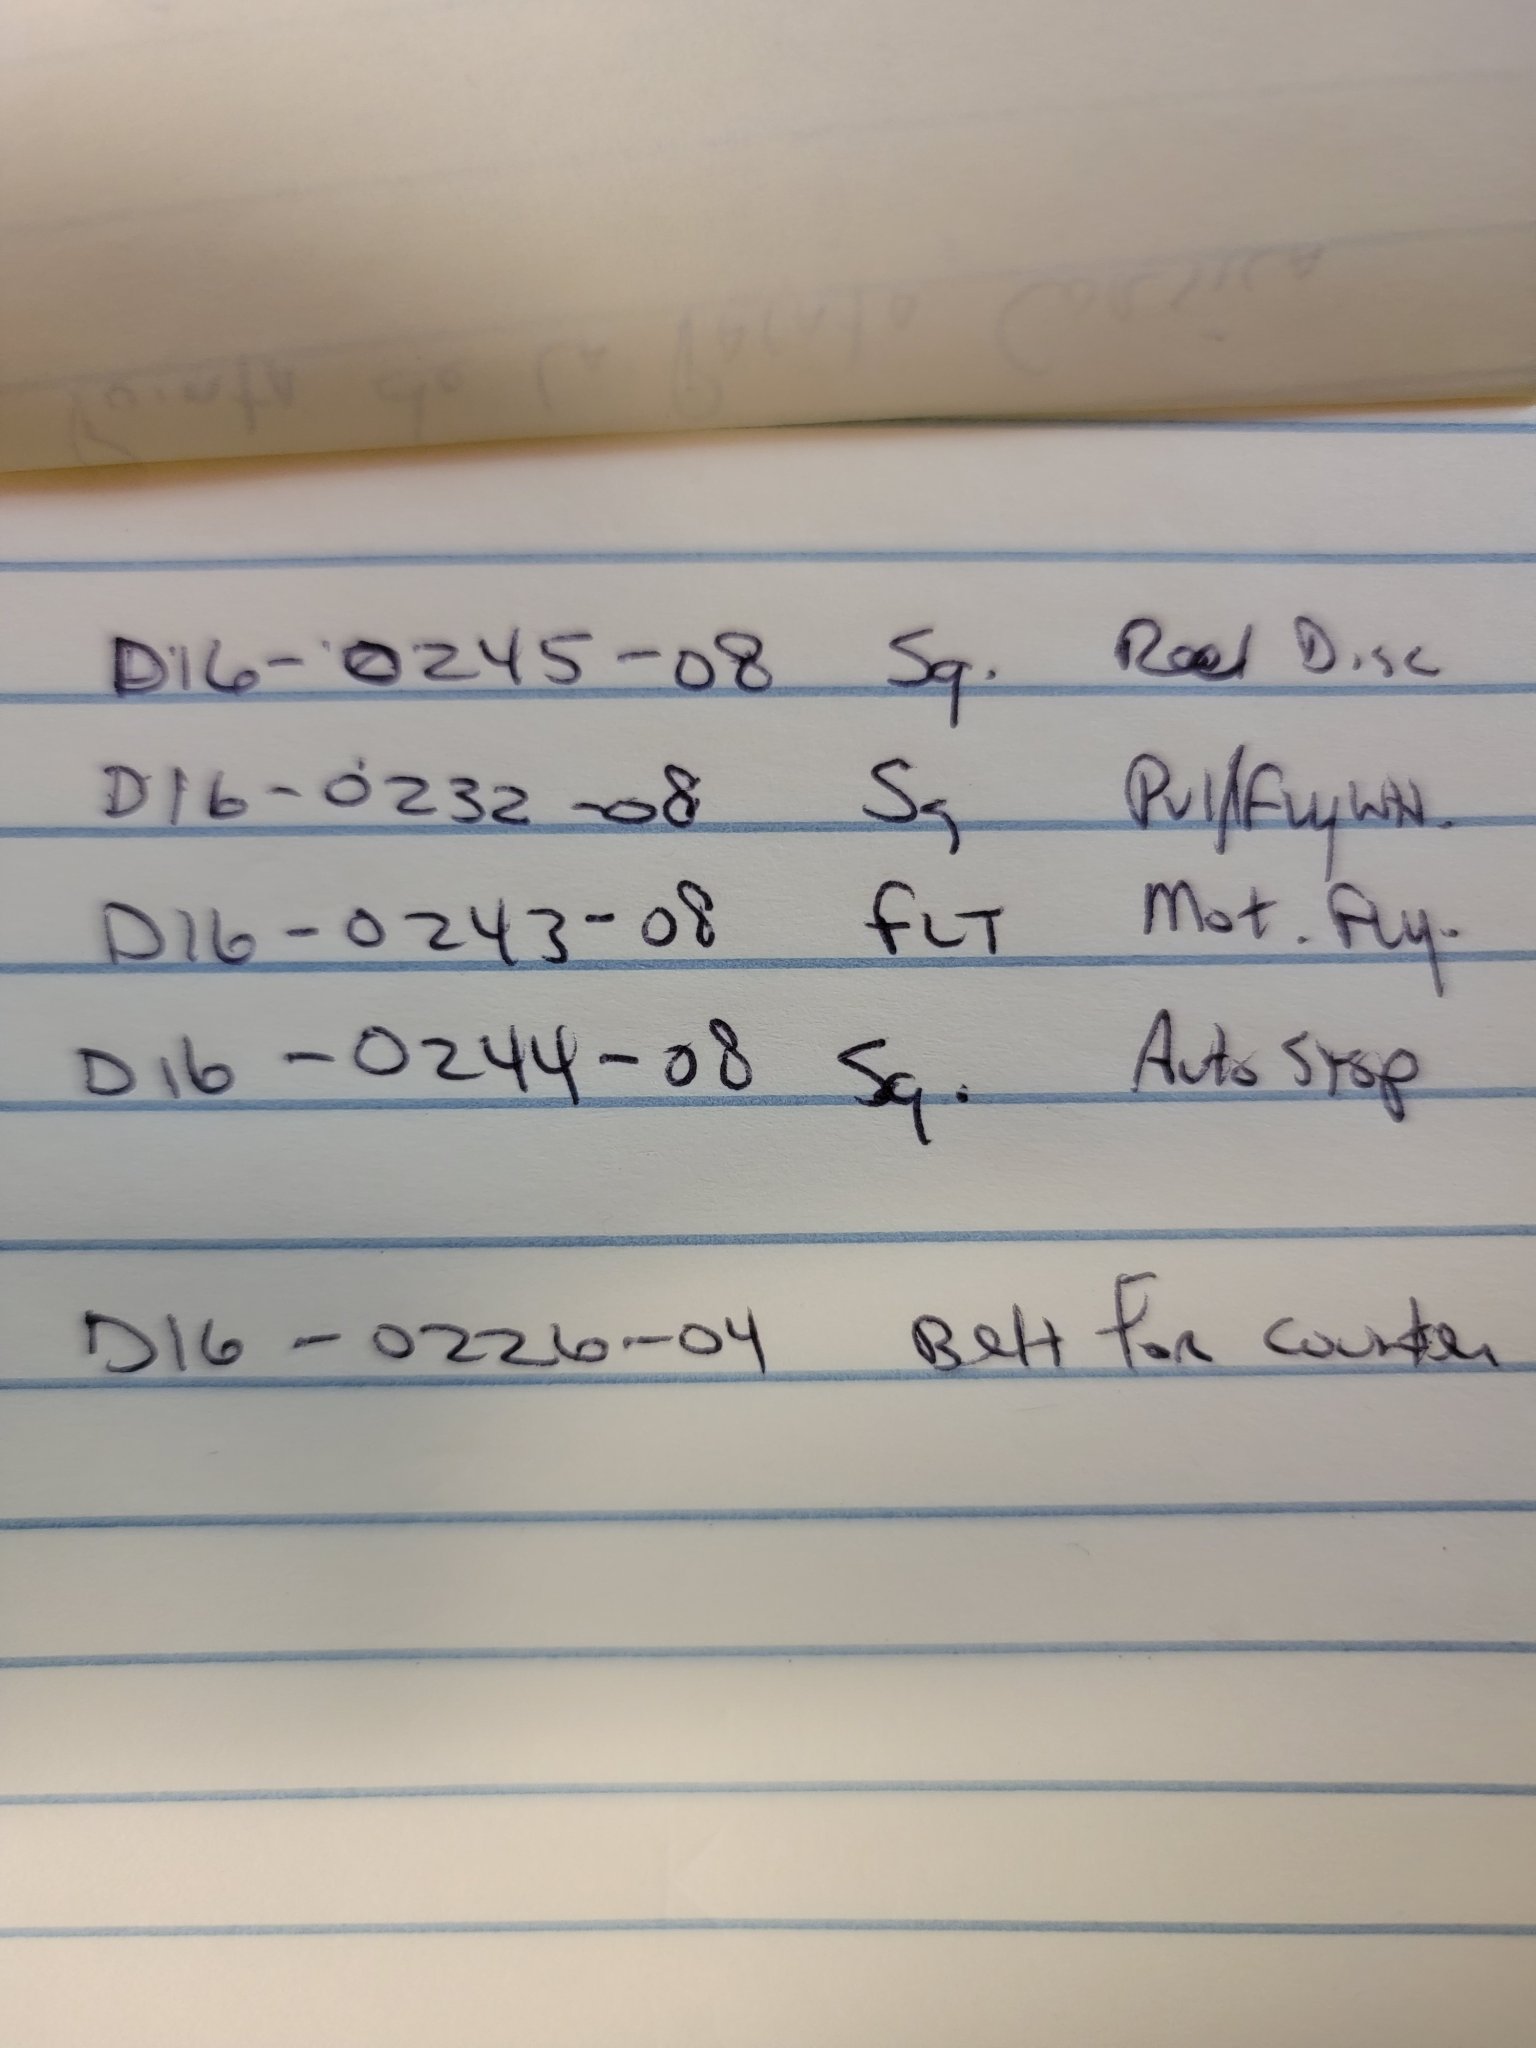 Pointe de la Parata Corsica
D16-0245-08 Sq. Reel Disc
D16-0232-08 Sq Pul/FlyWH.
D16-0243-08 FLT Mot. Fly.
D16-0244-08 Sq. Auto Stop
D16-0226-04 Belt For Counter